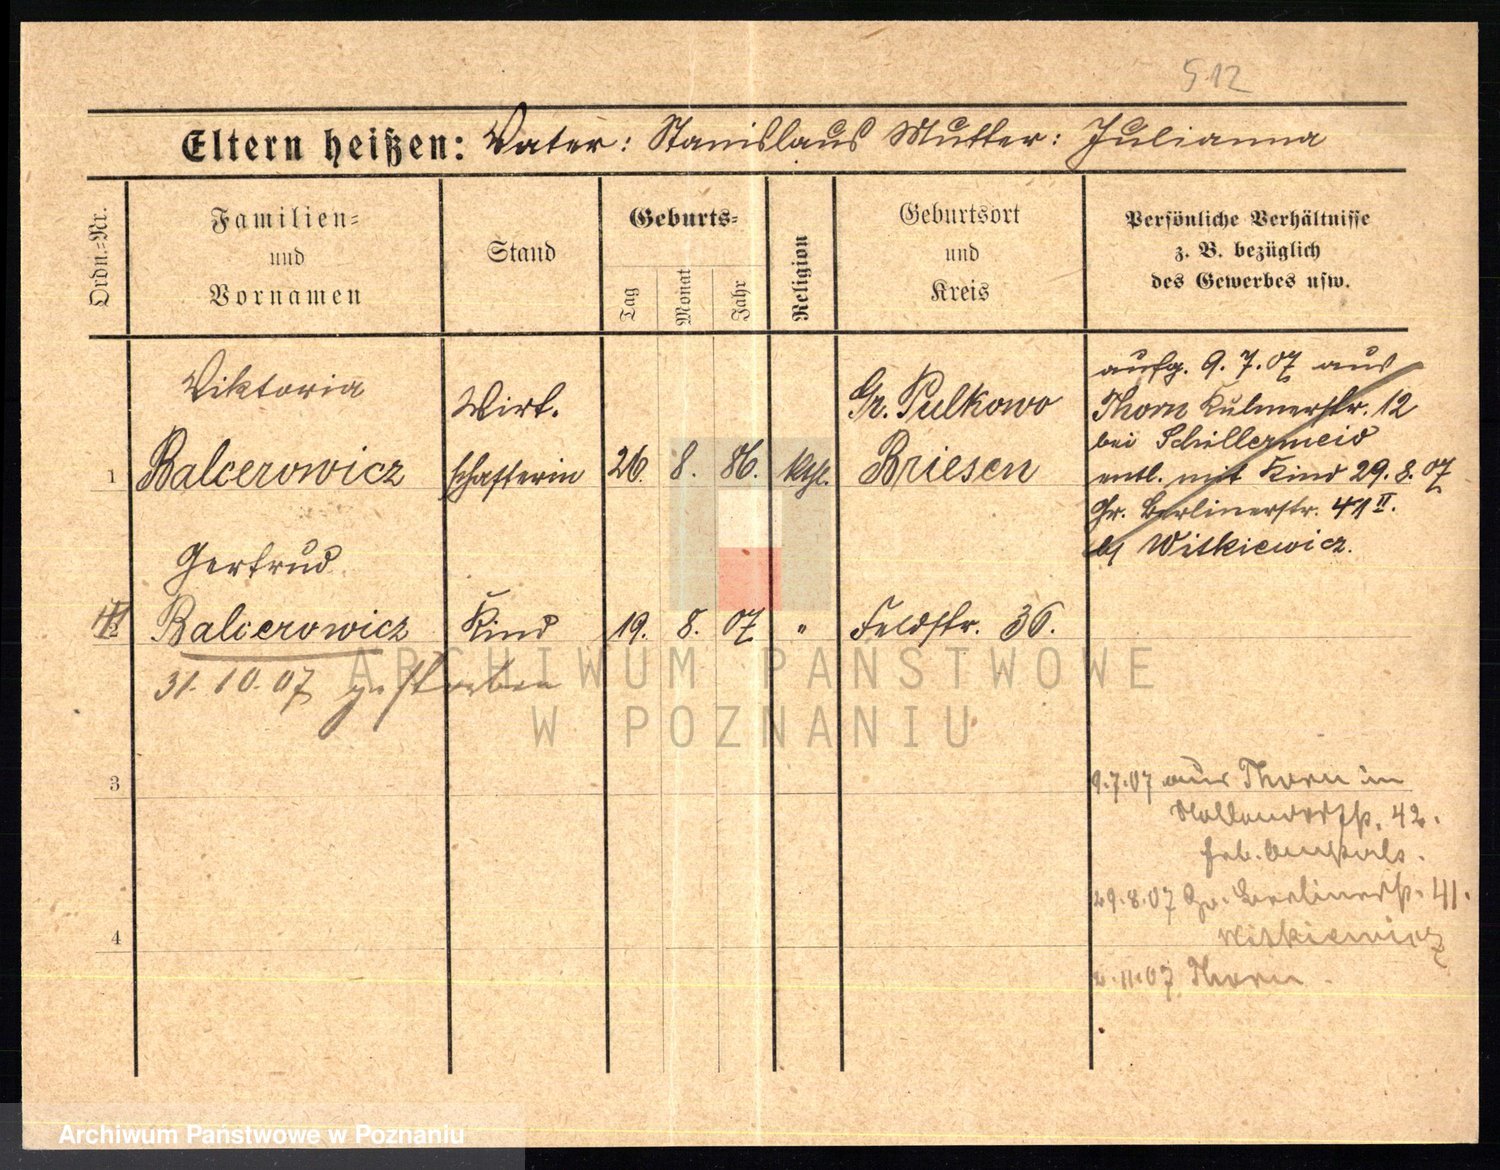 512
Eltern heißen: Vater: Stanislaus Mutter: Julianna
Ordn.=Nr.
Familien=
und
Vornamen
Stand
Geburts=
Tag
Monat
Jahr
Religion
Geburtsort
und
Kreis
Persönliche Verhältnisse
z. B. bezüglich
des Gewerbes usw.
1
Viktoria
Balcerowicz
Wirt.
schafterin
26. 8. 86. kth.
Gr. Pulkowo
Briesen
aufg. 9. 7. 07 aus
Thorn Kulmerstr. 12
bei
entl. mit Kind 29. 8. 07
Gr. Berlinerstr. 41 II.
b/ Witkiewicz.
2
Gertrud
Balcerowicz
Kind
19. 8. 07 "
Feldstr. 36.
31. 10. 07 gestorben
3
9.7.07 aus Thorn in
42.
29.8.07 Gr. Berlinerstr. 41.
Witkiewicz
4
2.11.07 Thorn.
ARCHIWUM PAŃSTWOWE
W POZNANIU
Archiwum Państwowe w Poznaniu